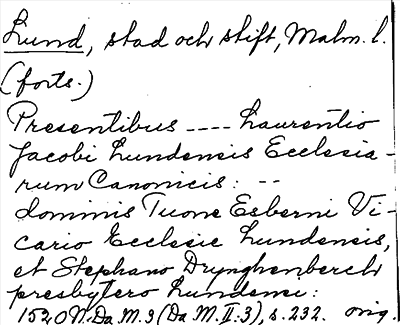 Lund, stad och stift, Malm. l.
(forts.)
Presentibus ---- Laurentio
Jacobi Lundensis Ecclesia-
rum Canonicis: --
dominis Tuone Esberni Vi-
cario Ecclesie Lundensis,
et Stephano Drynghenberch
presbytero Lundensi:
1520 N.Da.M.3 (Da M.II:3), s.232. orig.